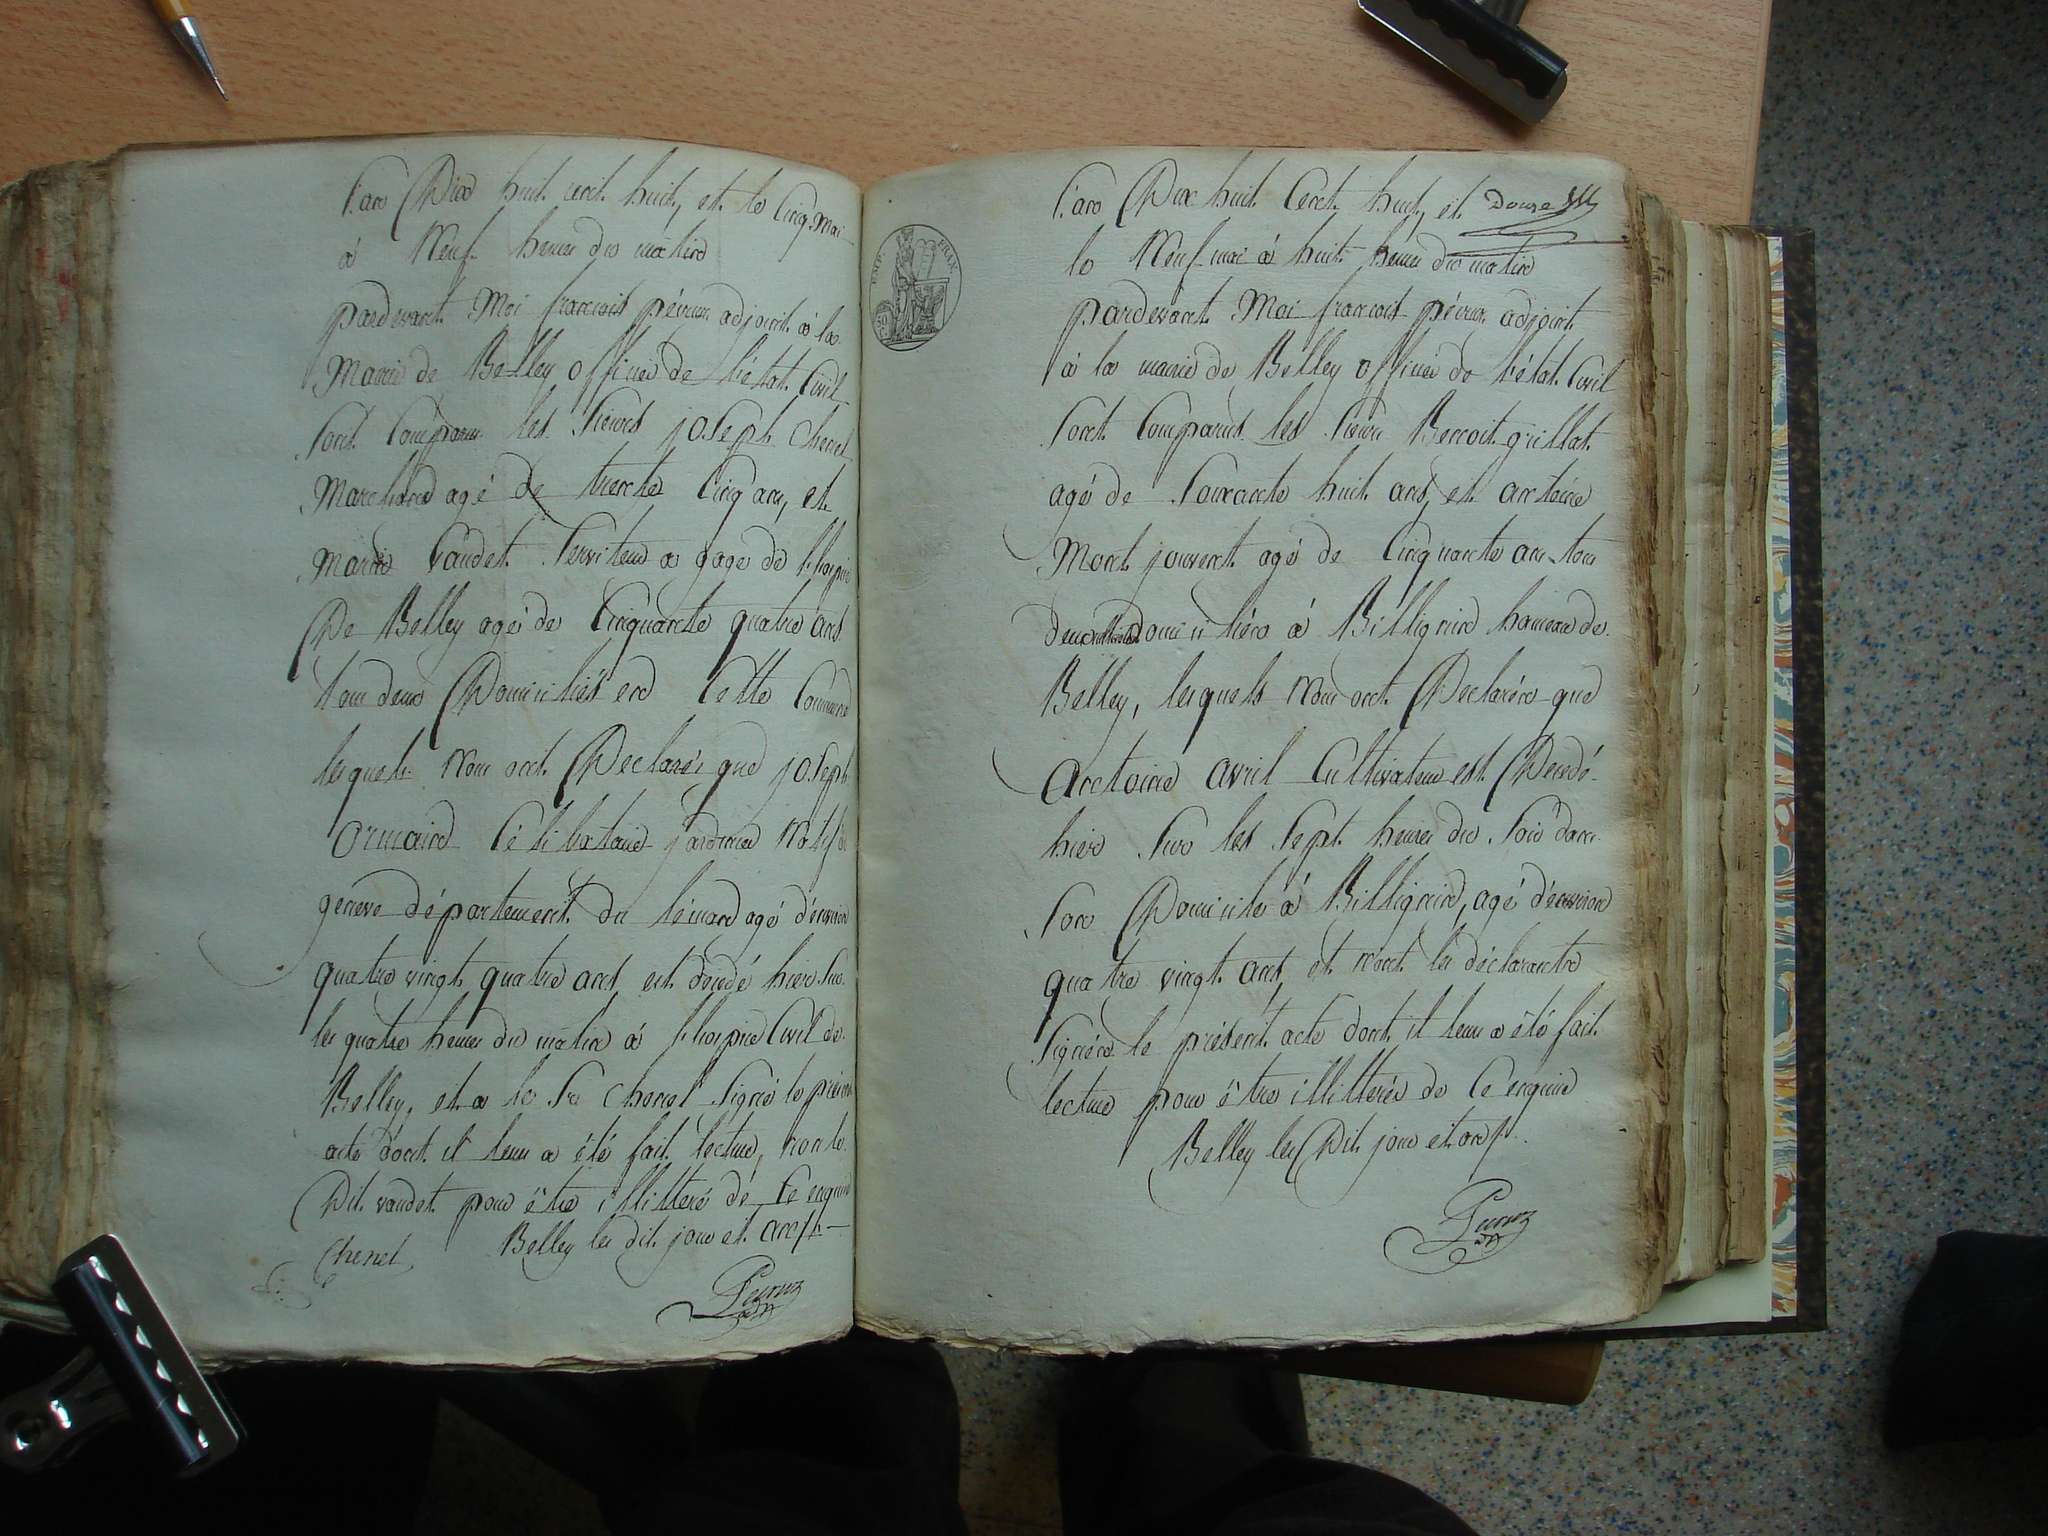 L'an Dix huit cent huit, et le Cinq mai
à Neuf heures du matin
pardevant Moi françois péruz adjoint à la
Mairie de Belley officier de l'état Civil
Sont Comparus les Sieurs joseph Chenel
Marchand agé de trente Cinq ans, et
Marin Vaudet Serviteur a gage de l'hospice
De Belley agé de Cinquante quatre ans
tous deux Domiciliés en Cette Commune
lesquels Nous ont Declarés que joseph
Armaind Célibataire jardinier Natif de
géneve département du léman agé d'environ
quatre vingt quatre ans est décédé hier Sur
les quatre heures du matin à l'hospice Civil de
Belley, et a le Sr Chenel Signé le présent
acte dont il leur a été fait lecture, non le
Dit vaudet pour être illitteré de Ce enquis
Belley les dit jour et an
Chenel
Péruz
adj
L'an Dix huit Cent huit, et
Douze
le Neuf mai à huit heures du matin
EMP. FRAN.
50
pardevant Moi françois péruz adjoint
à la mairie de Belley officier de l'état Civil
Sont Comparus les Sieurs Benoit grillat
agé de Soixante huit ans, et antoine
Mont jouvent agé de Cinquante ans tous
deux Domiciliés à Billignin hameau de
Belley, lesquels Nous ont Declarés que
Antoine avril Cultivateur est Decedé
hier Sur les Sept heures du Soir dans
Son Domicile à Billignin, agé d'environ
quatre vingt ans, et n'ont les déclarants
Signés le présent acte dont il leur a été fait
lecture pour être illitterés de Ce enquis
Belley les Dit jour et an
Péruz
adj